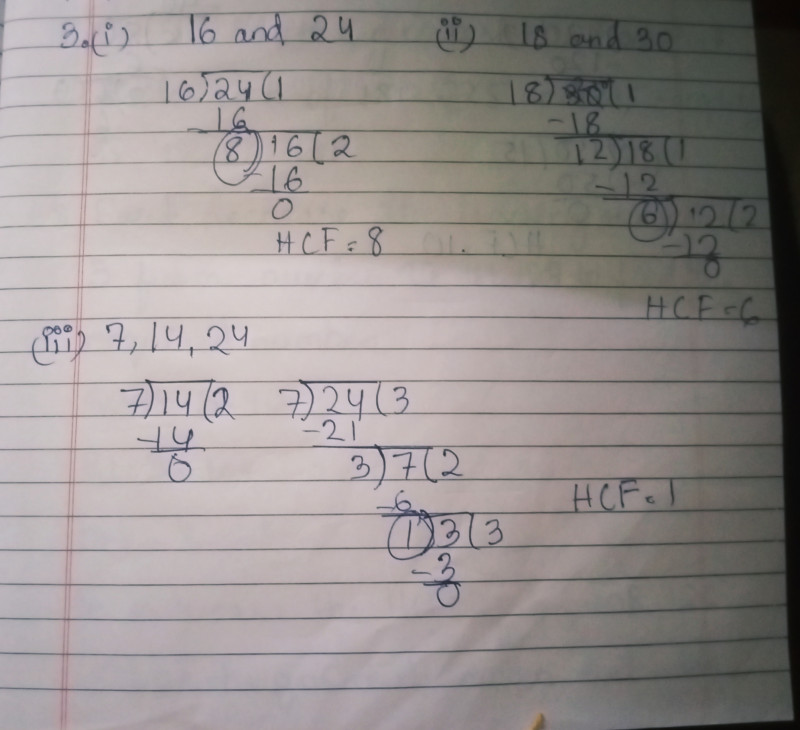 3.(i) 16 and 24 (ii) 18 and 30
16)24(1 18)30(1
-16 -18
8)16(2 12)18(1
-16 -12
0 6)12(2
HCF = 8 -12
0
HCF = 6
(iii) 7, 14, 24
7)14(2 7)24(3
-14 -21
0 3)7(2
-6 HCF = 1
1)3(3
-3
0